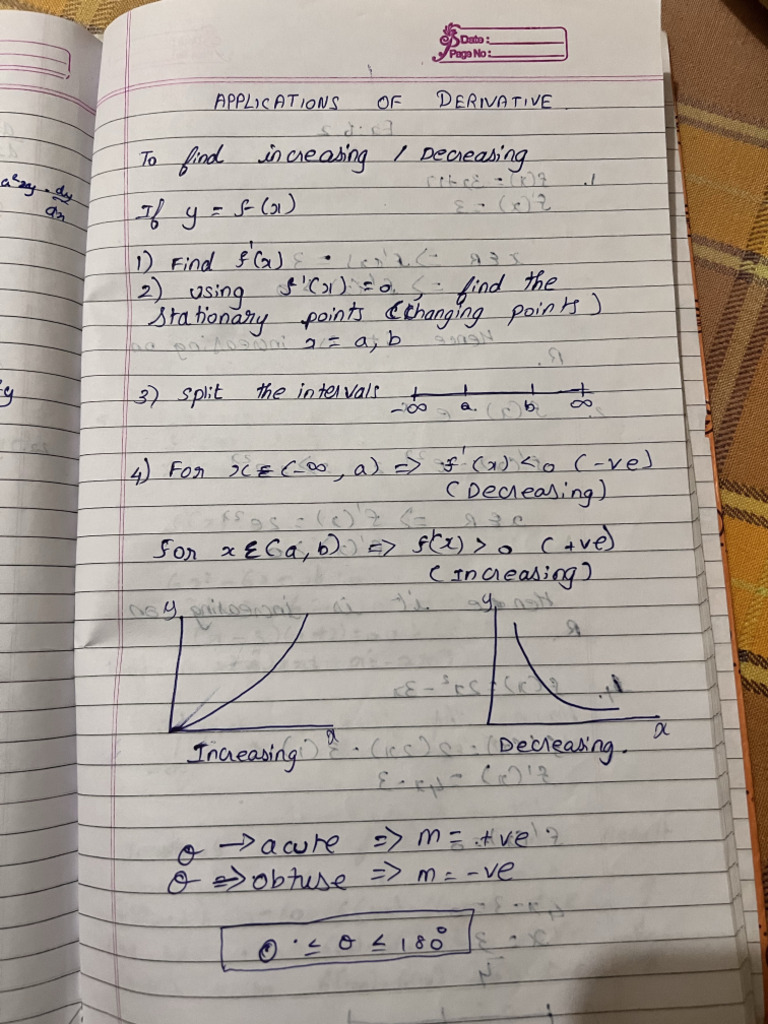 Date :
Page No :
APPLICATIONS OF DERIVATIVE
To find increasing / Decreasing
a²xy · dy
dx
If y = f(x)
1) Find f'(x)
2) using f'(x) = 0 find the
stationary points (changing points)
x = a, b
3) split the intervals
-∞ a b ∞
4) For x ∈ (-∞, a) => f'(x) < 0 (-ve)
(Decreasing)
for x ∈ (a, b) => f'(x) > 0 (+ve)
(Increasing)
y y
x x
Increasing Decreasing.
θ → acute => m = +ve
θ => obtuse => m = -ve
0° ≤ θ ≤ 180°